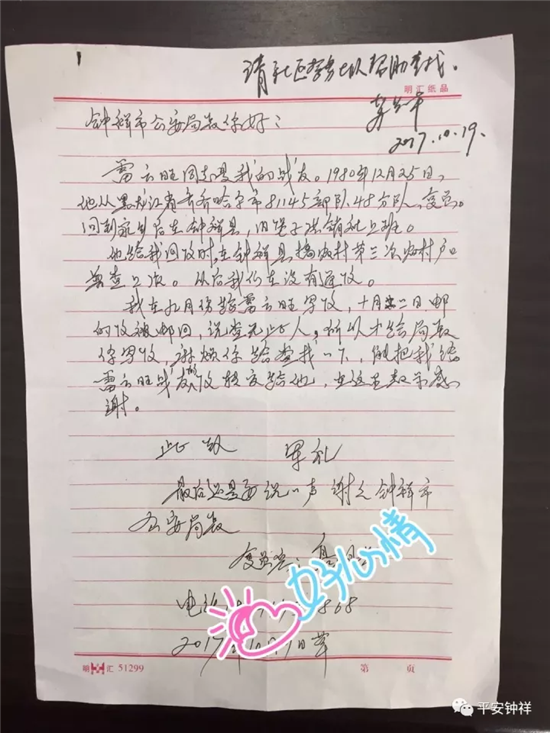 请社区警七队帮助查找。
明汇纸品
2017.10.19.
钟祥市公安局长你好:
雷云旺同志是我的战友。1980年12月25日,
他从黑龙江省齐齐哈尔市81145部队48分队,复员。
回到家乡后在钟祥县,旧口子供销社上班。
他给我回信时,在钟祥县 农村第三次农村户
普查工次。从后我们在没有通信。
我在九月份给雷云旺写信,十月十二日邮
的信被邮回,说查无此人,所以才给局长
你写信,麻烦你给查找一下,能把我给
雷云旺战友的信转交给他,在这里表示感
谢。
此致 军礼
最后还是要说一声谢谢钟祥市
公安局长
复员兵:
好心情
电话 868
2017年10月 日草
明汇 51299 第 页
平安钟祥